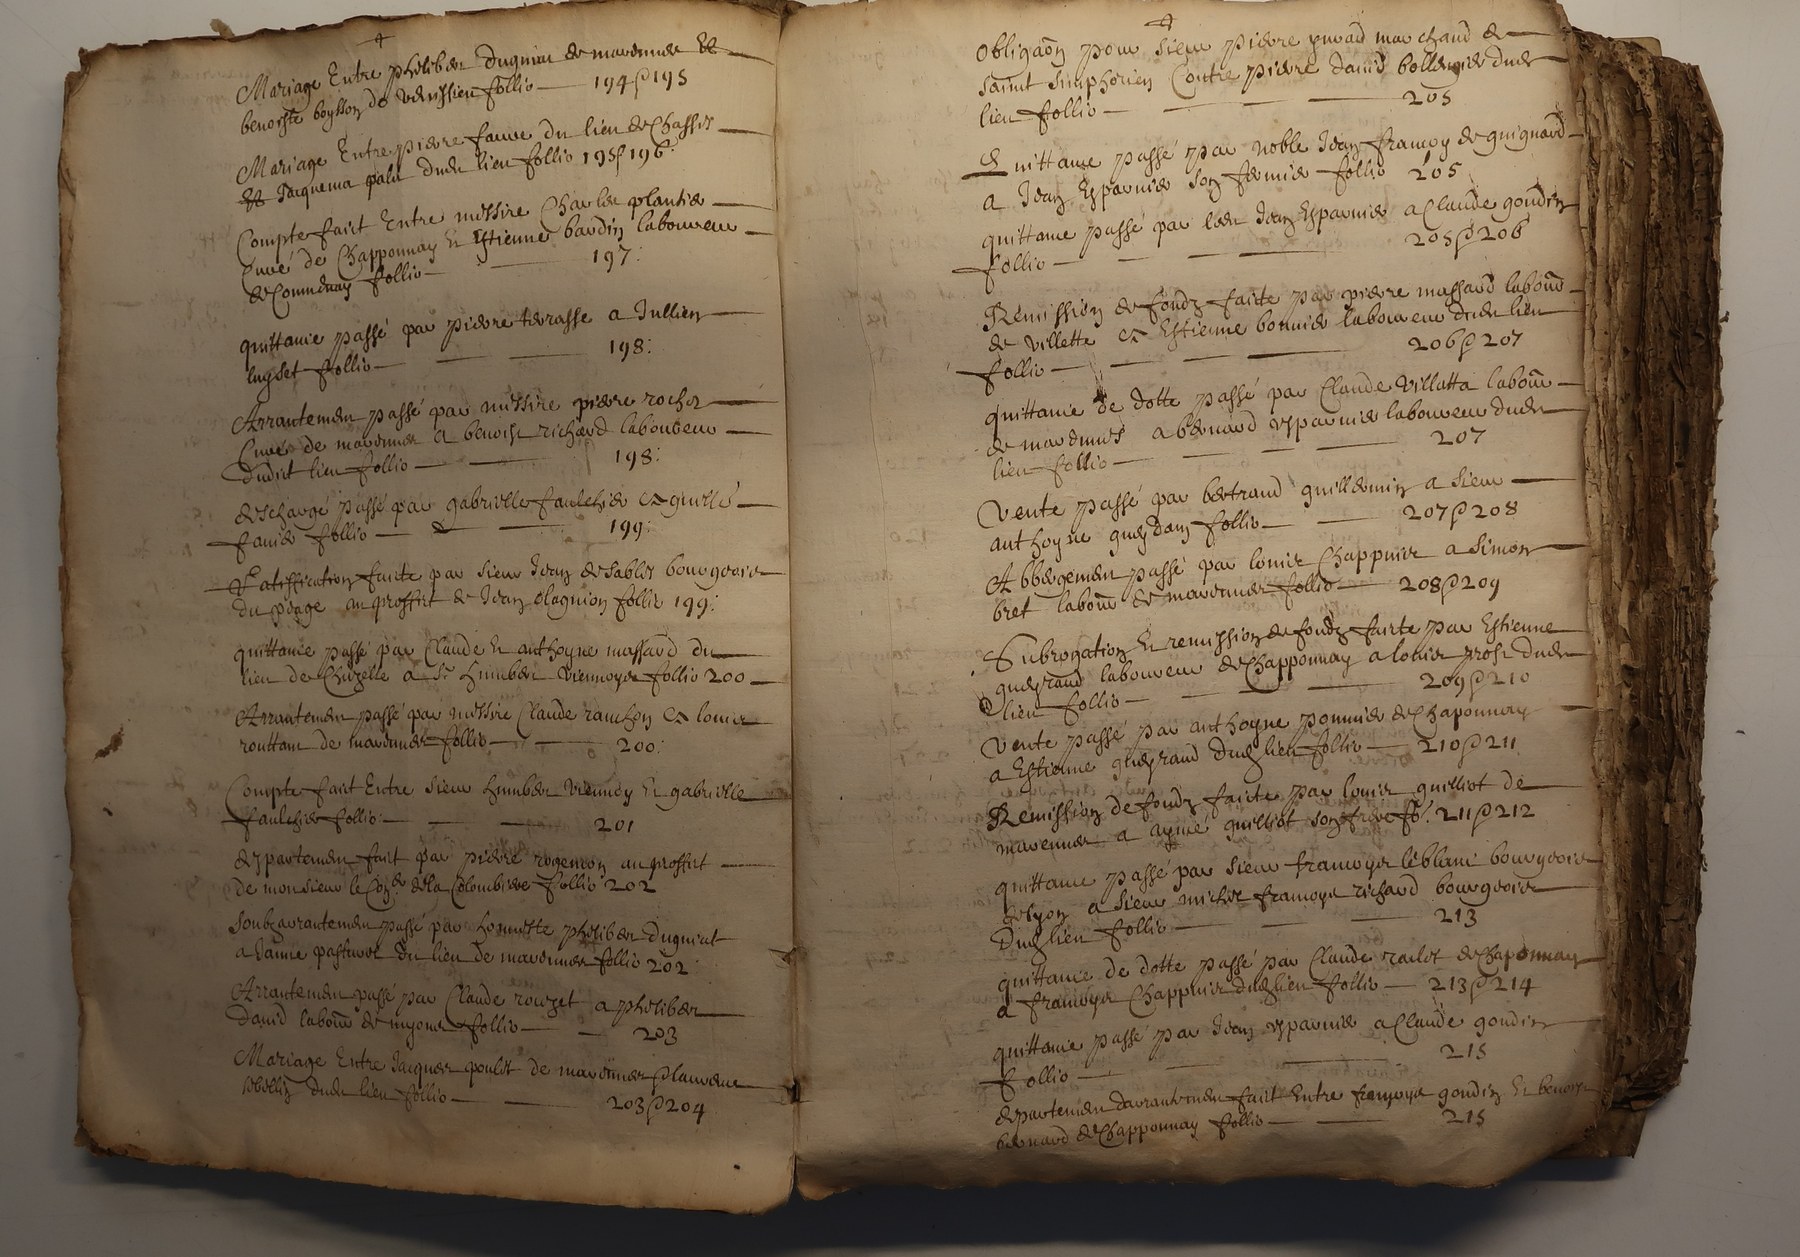 Mariage Entre philiber duguiat de marennes Et
benoiste boysson de venissieu follio 194 & 195
Mariage Entre pierre faure du lieu de Chasses
Et Jaquema palu dudt lieu follio 195 & 196
Compte faict Entre messire Charles plantier
Curé de Chapponnay Et Estienne bardin laboureur
de Communay follio 197
quittance passé par pierre terrasse a Jullien
lugset follio 198
Arrantement passé par messire pierre rocher
Curé de marennes A benoist richard laboureur
dudict lieu follio 198
descharge passé par gabrielle faulchier Et
fanier follio 199
Ratiffication faicte par sieur Jean de sables bourgeois
du peage au proffict de Jean olagnion follio 199
quittance passé par Claude Et anthoyne massard du
lieu de Chuzelle a Sr humber viennoys follio 200
Arrantement passé par messire Claude ranchon Et louis
routtan de marennes follio 200
Compte faict Entre sieur humber viennoy Et gabrielle
faulchier follio 201
despartement faict par pierre rogemon au proffict
de monsieur le de la Colombiere follio 202
soubzarrantement passé par honneste philiber duguiat
a Janne pasturel du lieu de marennes follio 202
Arrantement passé par Claude rouzet a philiber
david labour de myons follio 203
Mariage Entre Jacques poulet de marennes
dudt lieu follio 203 & 204
obligaon pour sieur pierre marchand de
saint simphorien Contre pierre david dudt
lieu follio 205
Quittance passé par noble Jean francoy de guignard
A Jean Esparnier son fermier follio 205
quittance passé par ledt Jean Esparnier a Claude gondin
follio 205 & 206
Remission de fondz faicte par pierre massard labour
de villette Et Estienne bonnier laboureur dudt lieu
follio 206 & 207
quittance de dotte passé par Claude villatta labour
de marennes a bernard esparnier laboureur dudt
lieu follio 207
Vente passé par bertrand guillermin a sieur
anthoyne gueydan follio 207 & 208
Abbergement passé par louis Chappuis a simon
bret labour de marennes follio 208 & 209
Subrogation Et remission de fondz faicte par Estienne
gueyraud laboureur de Chapponnay a louis prost dudt
lieu follio 209 & 210
Vente passé par anthoyne ponnier de Chaponnay
a Estienne gueyraud dudt lieu follio 210 & 211
Remission de fondz faicte par louis guilliot de
marennes a aymé guilliot son frere fo. 211 & 212
quittance passé par sieur francoys leblanc bourgeois
de lyon a sieur michel francoys richard bourgeois
dudt lieu follio 213
quittance de dotte passé par Claude raclet de Chaponnay
a francoys Chappuis dudt lieu follio 213 & 214
quittance passé par Jean esparnier a Claude gondin
follio 215
despartement darrantement faict Entre francoys gondin Et benoist
bernard de Chapponnay follio 215